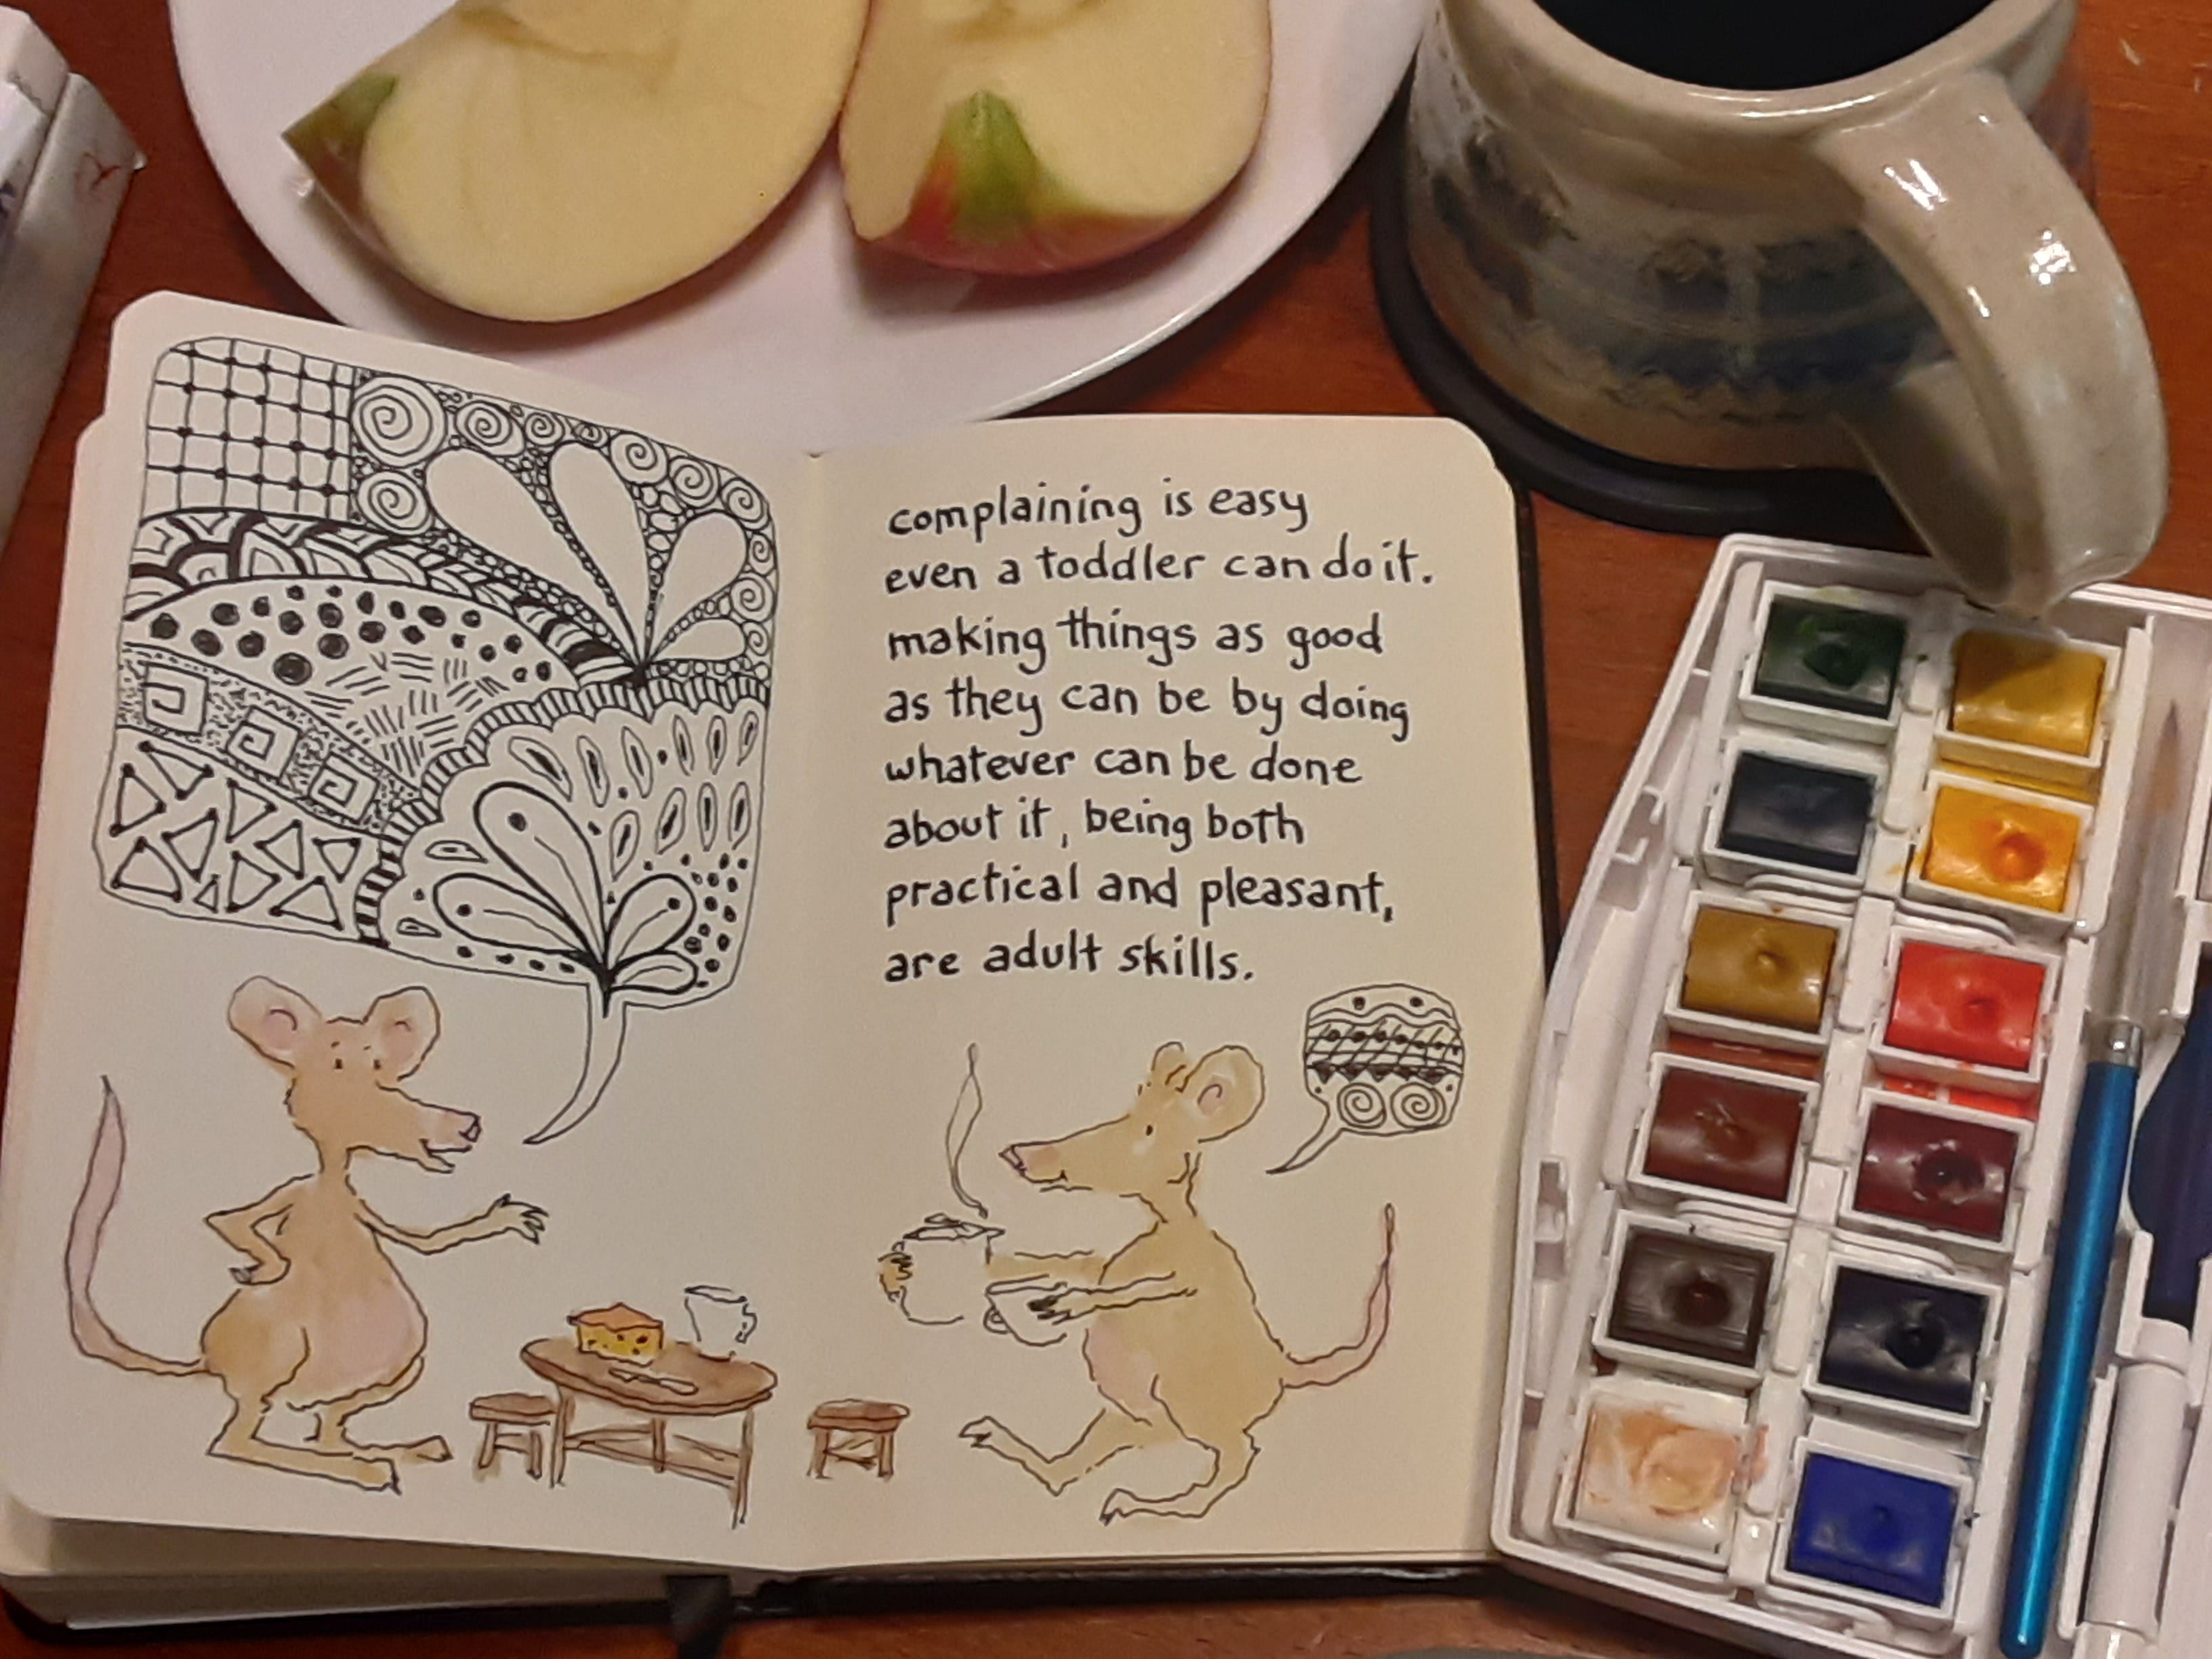 complaining is easy
even a toddler can do it.
making things as good
as they can be by doing
whatever can be done
about it, being both
practical and pleasant,
are adult skills.